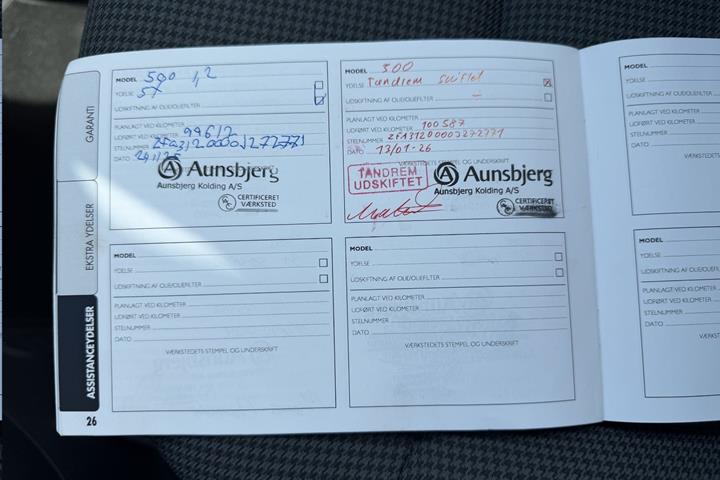 GARANTI
EKSTRA YDELSER
ASSISTANCEYDELSER
26
MODEL 500 1,2
YDELSE 57
UDSKIFTNING AF OLIE/OLIEFILTER
PLANLAGT VED KILOMETER
UDFØRT VED KILOMETER 99612
STELNUMMER ZFA3120000J272771
DATO
Aunsbjerg
Aunsbjerg Kolding A/S
CERTIFICERET
VÆRKSTED
MODEL 500
YDELSE Tandrem skiftet
UDSKIFTNING AF OLIE/OLIEFILTER -
PLANLAGT VED KILOMETER
UDFØRT VED KILOMETER 100587
STELNUMMER ZFA3120000J272771
DATO 13/01-26
VÆRKSTEDETS STEMPEL OG UNDERSKRIFT
TANDREM
UDSKIFTET
Aunsbjerg
Aunsbjerg Kolding A/S
CERTIFICERET
VÆRKSTED
MODEL
YDELSE
UDSKIFTNING AF OLIE/OLIEFILTER
PLANLAGT VED KILOMETER
UDFØRT VED KILOMETER
STELNUMMER
DATO
VÆRKSTEDETS STEMPEL OG UNDERSKRIFT
MODEL
YDELSE
UDSKIFTNING AF OLIE/OLIEFILTER
PLANLAGT VED KILOMETER
UDFØRT VED KILOMETER
STELNUMMER
DATO
VÆRKSTEDETS STEMPEL OG UNDERSKRIFT
MODEL
YDELSE
UDSKIFTNING AF OLIE
PLANLAGT VED KILOMETER
UDFØRT VED KILOMETER
STELNUMMER
DATO
VÆRKSTEDETS
MODEL
YDELSE
UDSKIFTNING AF OLIE
PLANLAGT VED KILOMETER
UDFØRT VED KILOMETER
STELNUMMER
DATO
VÆRKSTEDETS